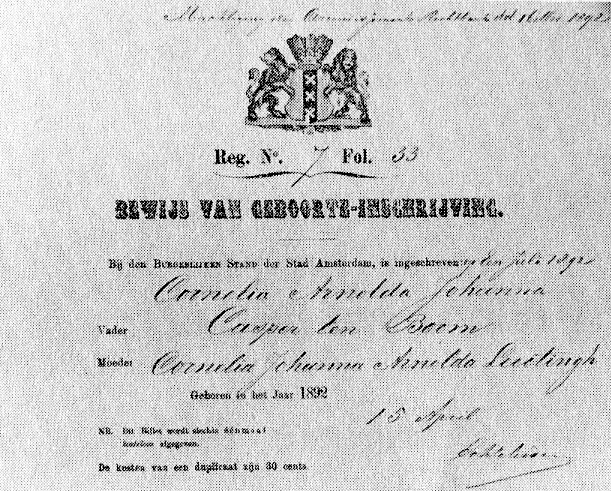 Reg. No. 7 Fol. 33
BEWIJS VAN GEBOORTE-INSCHRIJVING.
Bij den BURGERLIJKEN STAND der Stad Amsterdam, is ingeschreven den Juli 1892
Cornelia Arnolda Johanna
Vader Casper ten Boom
Moeder Cornelia Johanna Arnolda Luitingh
Geboren in het Jaar 1892
15 April
NB. Dit Billet wordt slechts éénmaal
kosteloos afgegeven.
De kosten van een duplicaat zijn 30 cents.